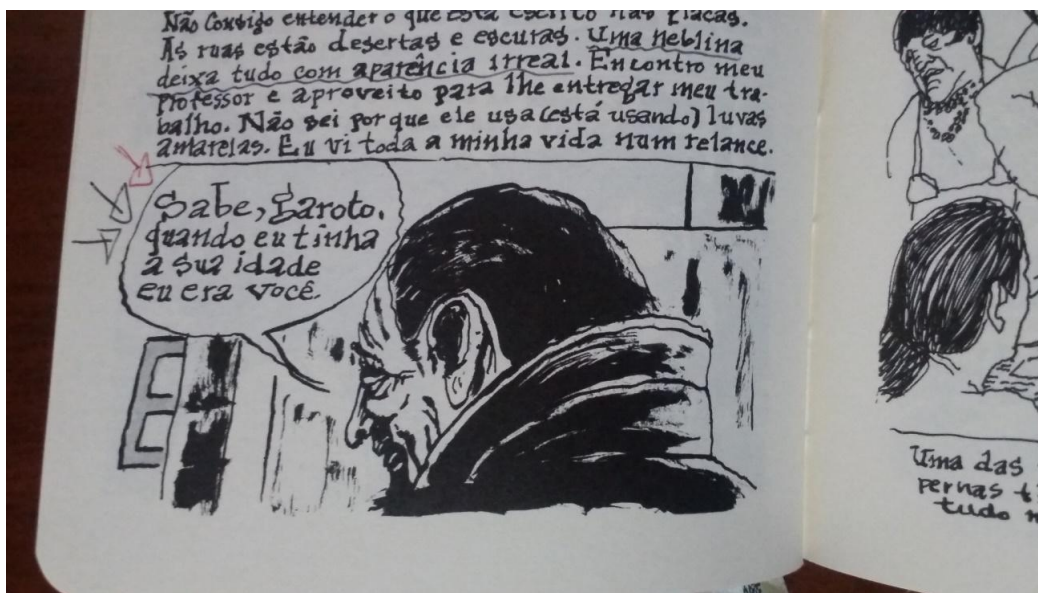 Não Consigo entender o que está escrito nas placas.
As ruas estão desertas e escuras. Uma neblina
deixa tudo com aparência irreal. Encontro meu
professor e aproveito para lhe entregar meu tra-
balho. Não sei por que ele usa (está usando) luvas
amarelas. Eu vi toda a minha vida num relance.
Sabe, garoto,
quando eu tinha
a sua idade
eu era você.
Uma das
pernas
tudo